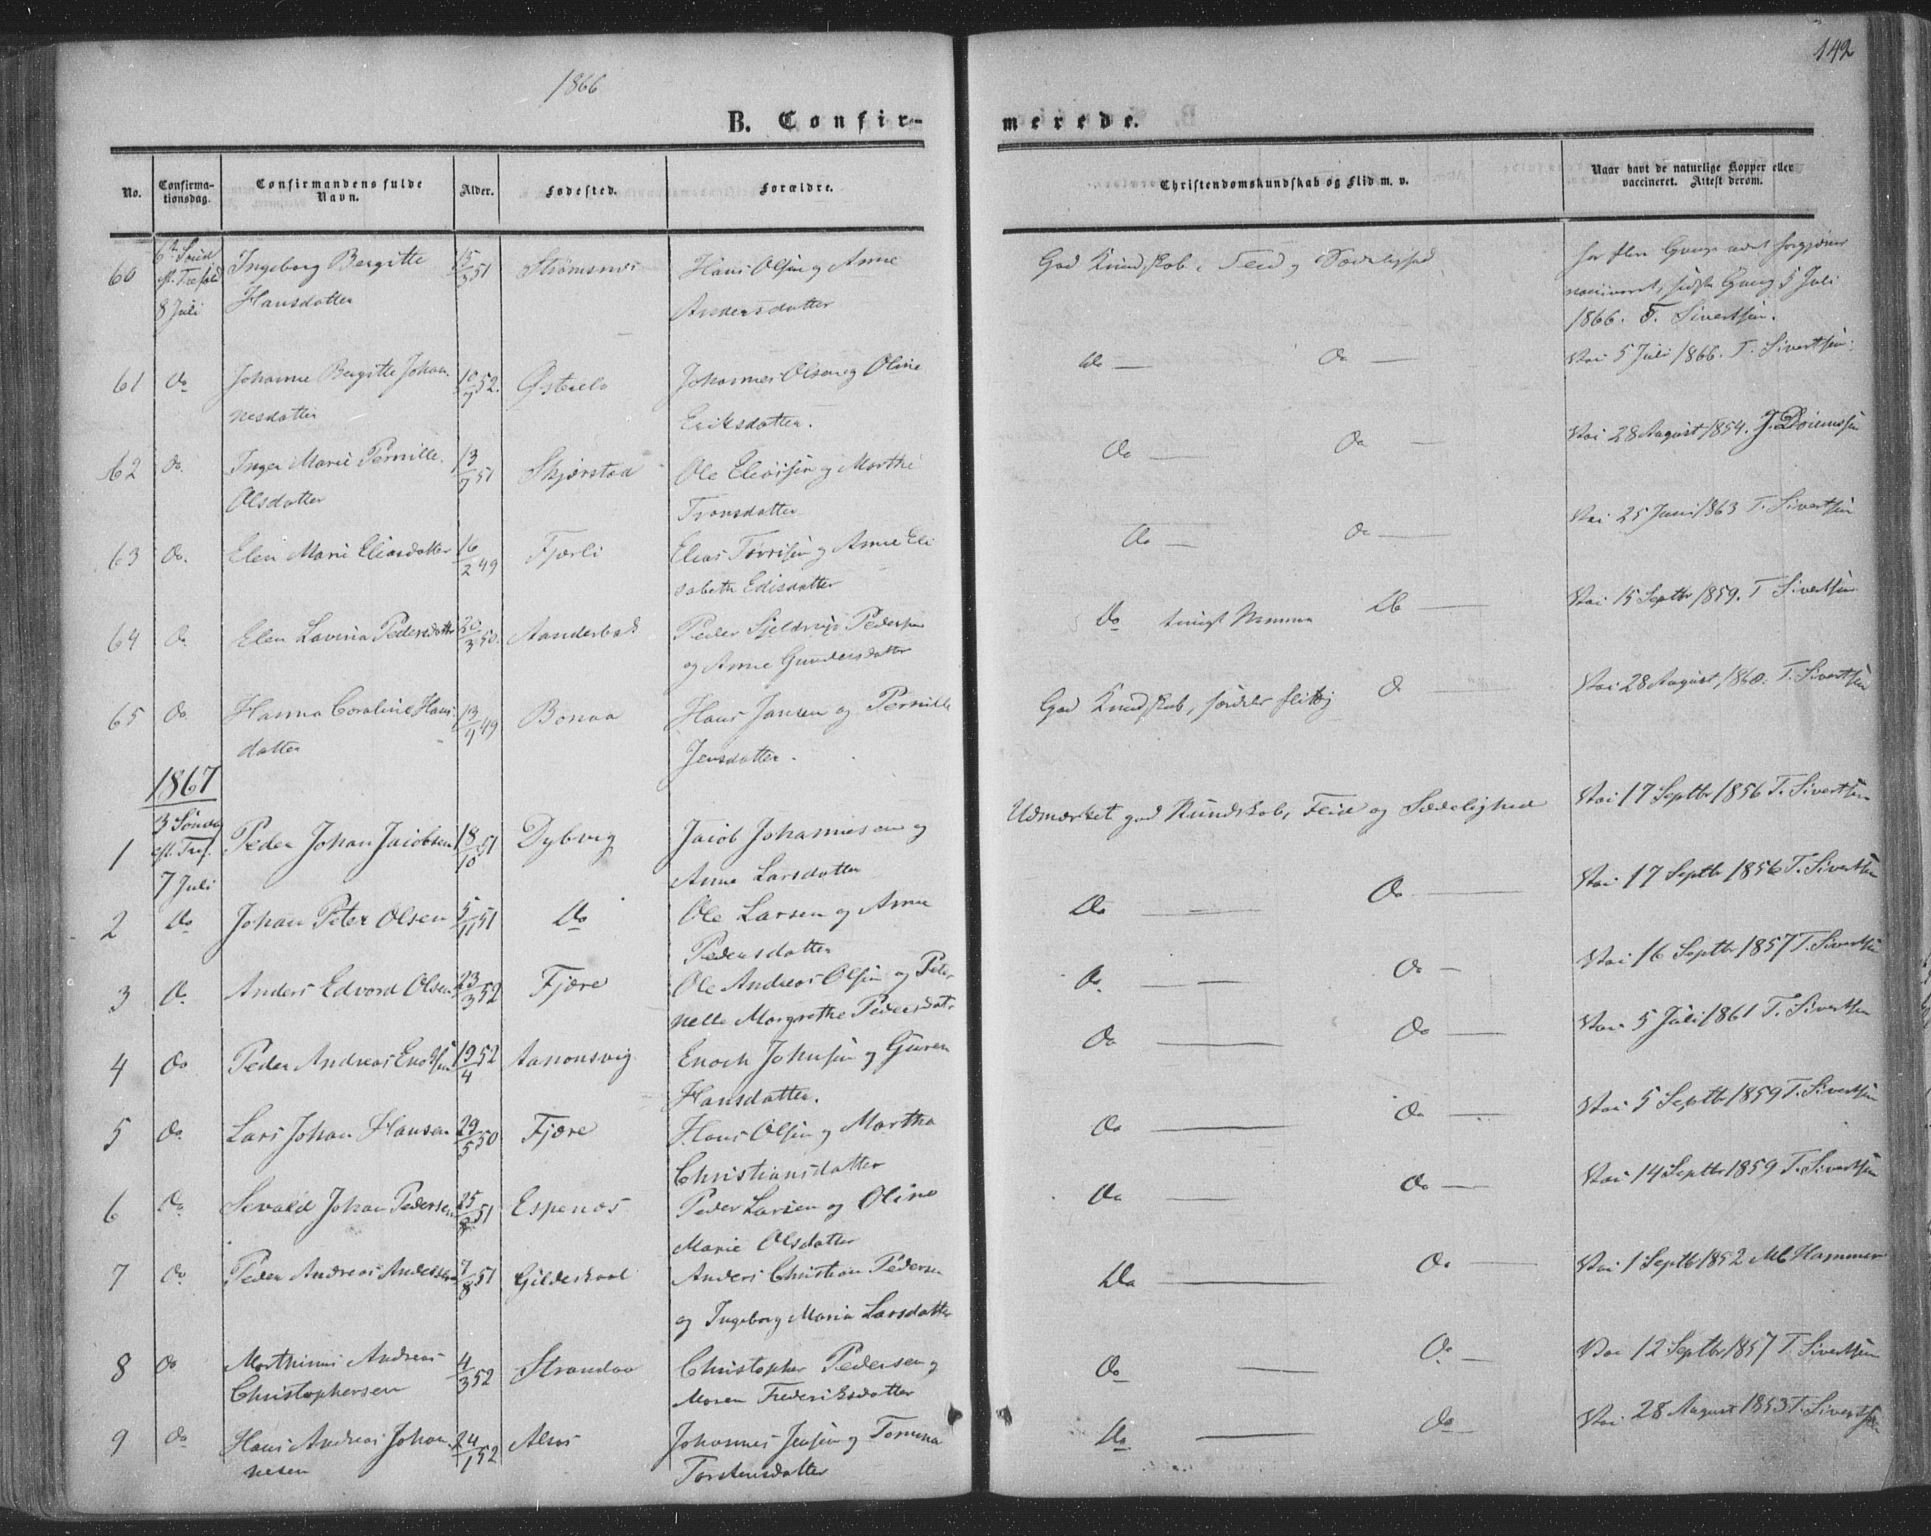 1866
142
B. Confir-
merede.
No.
Confirma-
tionsdag.
Confirmandens fulde
Navn.
Alder.
Fødested.
Forældre.
Christendomskundskab og Flid m. v.
Naar havt de naturlige Kopper eller
vaccineret. Attest derom.
60
8 Juli
Ingeborg Bergitte
Hansdatter
15/3 51
Strømsnes
Hans Olsen og Anne
Andersdatter
God Kundskab, Flid og Sædelighed
har flere Gange været forgjæves
vaccineret, sidste Gang 5 Juli
1866. T. Sivertsen.
61
Do
Johanne Bergitte Johan
nesdatter
10/7 52.
Johannes Olsen og Oline
Eriksdatter.
Do — Do —
Vac 5 Juli 1866. T. Sivertsen.
62
Do
Inger Marie Pernille
Olsdatter
13/7 51
Skjerstad
Ole og Marthe
Tronsdatter
Do — Do —
Vac 28 August 1854.
63
Do.
Elen Marie Eliasdatter
16/2 49
Fjerli
Elias og Anne Eli
sabeth Edisdatter
Do — Do —
Vac 25 Juni 1863 T. Sivertsen
64
Do
Elen Lavina Pedersdatter
/3 50
Peder Pedersen
og Anne Gundersdatter
Do Do —
Vac 15 Septbr 1859. T Sivertsen
65
Do
Hanna Caroline Hans
datter
13/9 49
Bonaa
Hans Jansen og Pernille
Jensdatter.
God Kundskab, særdeles flittig Do —
Vac 28 August 1860. T. Sivertsen
1867
1
3 Søndag
eft. Tref.
7 Juli
Peder Johan Jacobsen
18/10 51
Dybvig
Jacob Johannesen og
Anne Larsdatter
Udmærket god Kundskab, Flid og Sædelighed
Vac 17 Septbr 1856 T. Sivertsen
2
Do
Johan Peter Olsen
5/11 51
Do
Ole Larsen og Anne
Pedersdatter
Do — Do —
Vac 17 Septbr 1856 T. Sivertsen
3
Do
Anders Edvard Olsen
23/3 52
Fjære
Ole Andreas Olsen og Peter
nelle Margrethe Pedersdat.
Do — Do —
Vac 16 Septbr 1857 T. Sivertsen
4
Do
Peder Andreas Enochsen
19/4 52
Aanonsvig
Enoch Johnsen og Guren
Hansdatter.
Do — Do —
Vac 5 Juli 1861 T. Sivertsen
5
Do
Lars Johan Hansen
29/5 50
Fjære
Hans Olsen og Martha
Christiansdatter
Do — Do —
Vac 5 Septbr 1859 T. Sivertsen
6
Do
Sevald Johan Pedersen
25/8 51
Espenæs
Peder Larsen og Oline
Marie Olsdatter
Do — Do —
Vac 14 Septbr 1859 T. Sivertsen
7
Do
Peder Andreas Andersen
7/8 51
Gildeskaal
Anders Christian Pedersen
og Ingeborg Maria Larsdatter
Do — Do —
Vac 1 Septbr 1852 Hammer
8
Do
Morthinus Andreas
Christophersen
4/3 52
Strandaa
Christopher Pedersen og
Maren Frederiksdatter
Do — Do —
Vac 12 Septbr 1857 T. Sivertsen
9
Do
Hans Andreas Johan
nesen
24/1 52
Johannes Jensen og Tomina
Torstensdatter
Do — Do —
Vac 28 August 1853 T. Sivertsen